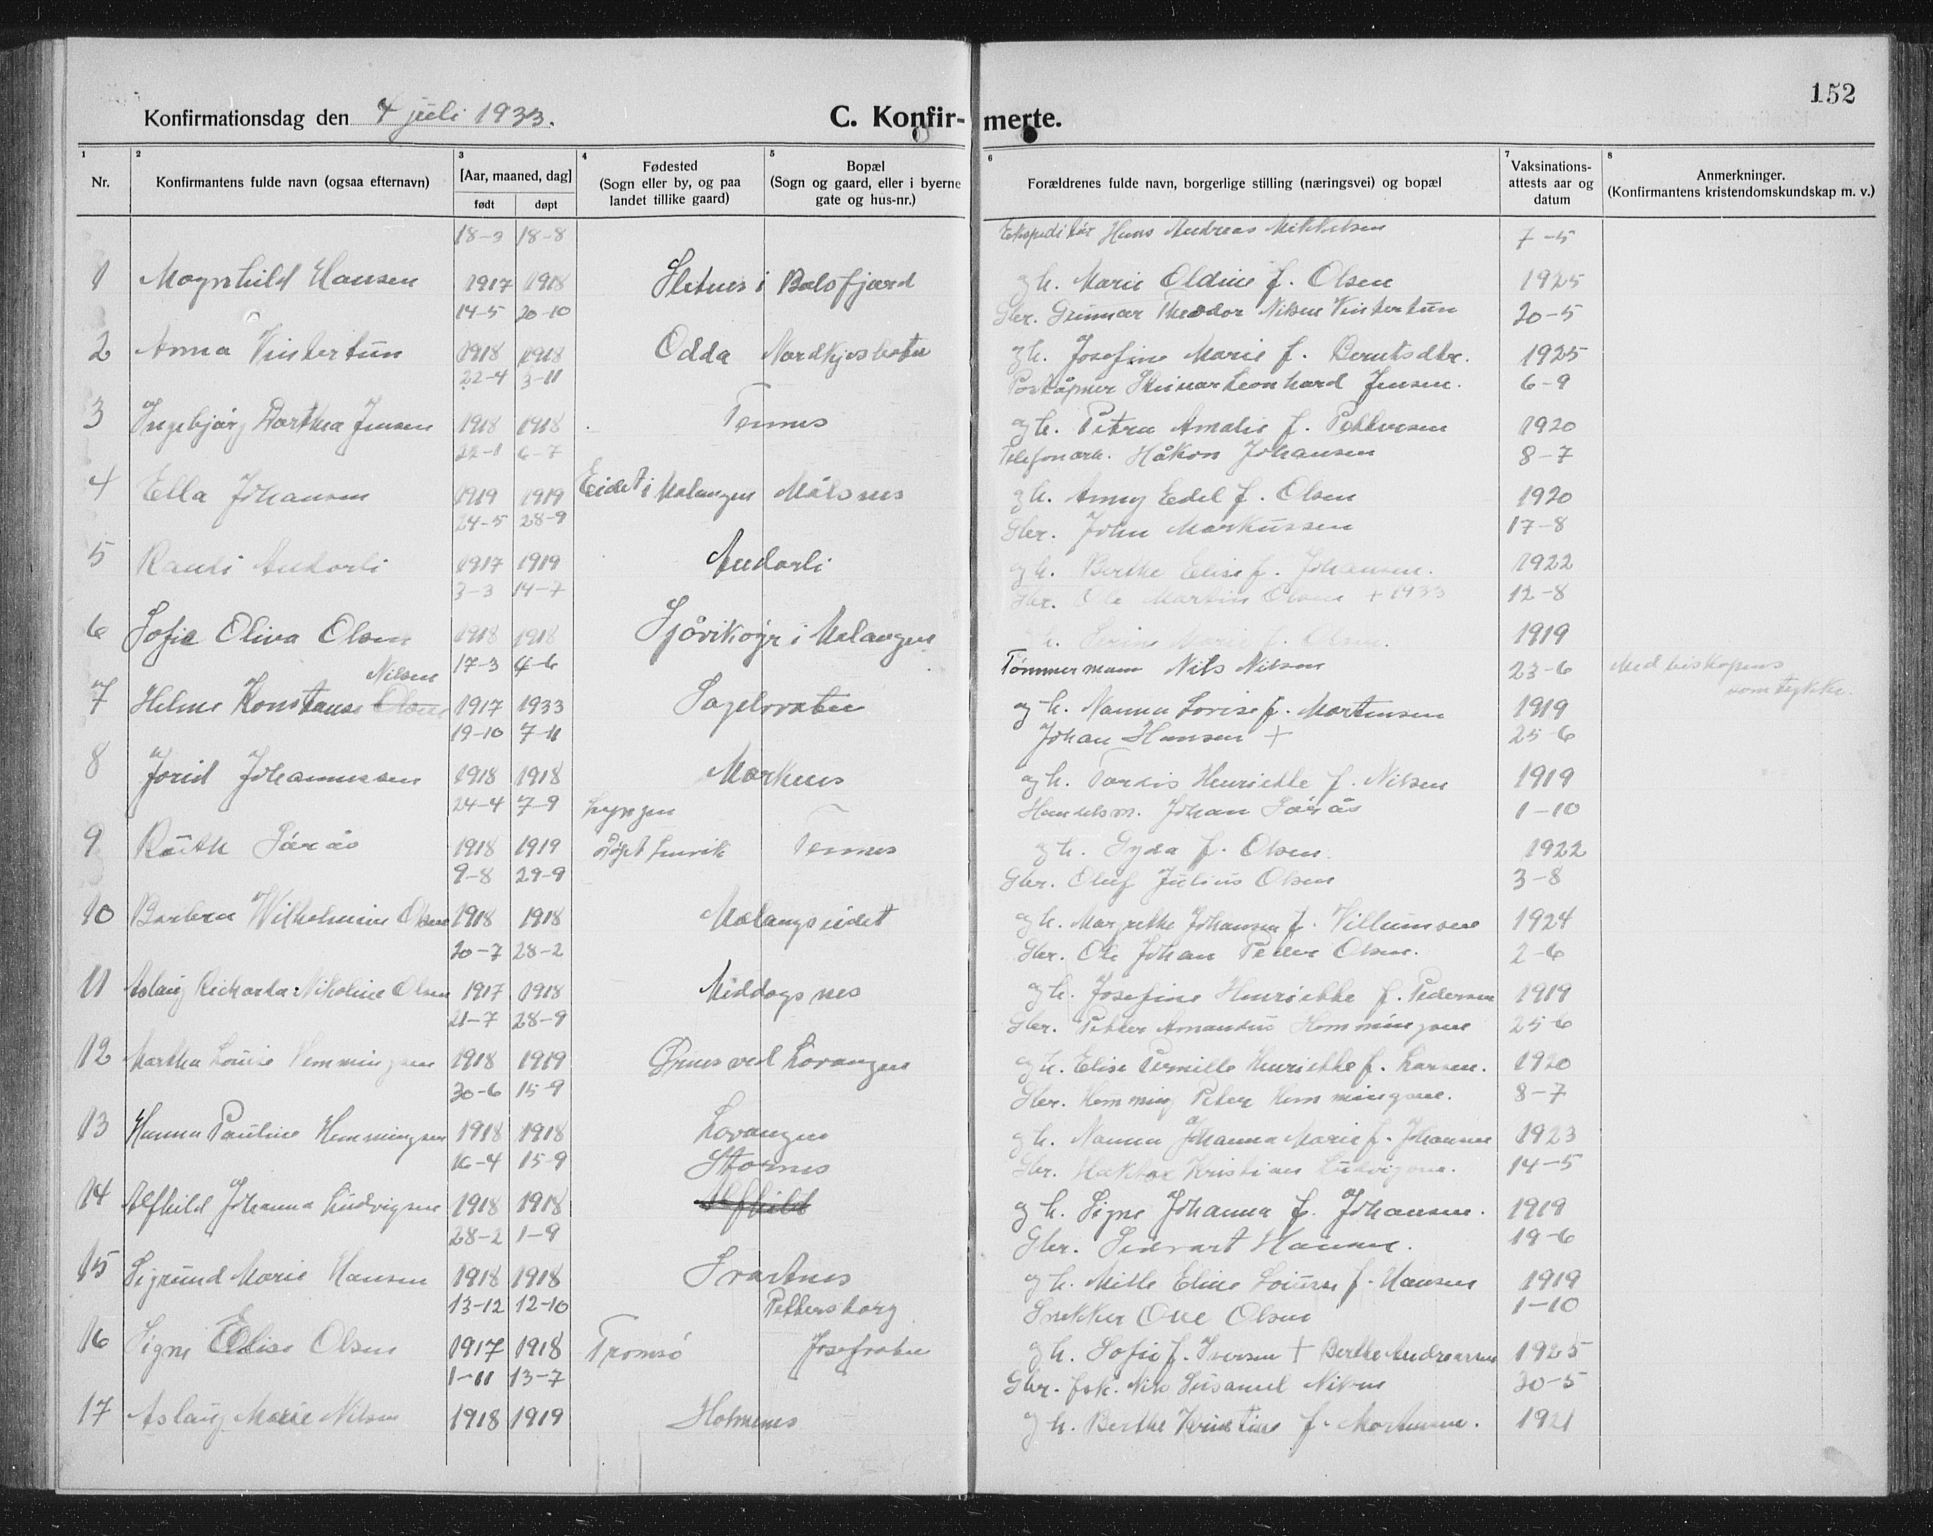 152
Konfirmationsdag den 4 juli 1933.
C. Konfir- merte.
1 2 3 4 5 6 7 8
Nr. Konfirmantens fulde navn (ogsaa efternavn) [Aar, maaned, dag] født døpt Fødested (Sogn eller by, og paa landet tillike gaard) Bopæl (Sogn og gaard, eller i byerne gate og hus-nr.) Forældrenes fulde navn, borgerlige stilling (næringsvei) og bopæl Vaksinations-attests aar og datum Anmerkninger. (Konfirmantens kristendomskundskap m. v.)
18-3 18-8 Ekspeditør Hans Andreas Mikkelsen 7-5
1 Magnhild Hansen 1917 1918 Sletnes i Balsfjord og h. Marie Oldine f. Olsen 1925
14-5 20-10 Gbr. Gunnar Theodor Nilsen Vintertun 20-5
2 Anna Vintertun 1918 1918 Odda Nordkjosbotn og h. Josefine Marie f. Berntsdtr. 1925
22-4 3-11 Poståpner Steinar Leonhard Jensen. 6-9
3 Ingebjørg Dorthea Jensen 1918 1918 Tennes og h. Petra Amalie f. Pettersen 1920
22-1 6-7 Telefonarb. Håkon Johansen 8-7
4 Ella Johansen 1919 1919 Eidet i Malangen Målsnes og h. Anny Edel f. Olsen 1920
24-5 28-9 Gbr. John Markussen 17-8
5 Randi Andorli 1917 1919 Andorli og h. Berthe Elise f. Johansen. 1922
3-3 14-7 Gbr. Ole Martin Olsen + 1933 12-8
6 Sofie Oliva Olsen 1918 1918 Sjøvikøyr i Malangen h. Marie f. Olsen. 1919
Nilsen 17-3 4-6 Tømmermann Nils Nilsen 23-6 Med biskopens
7 Helma Konstanse Olsen 1917 1933 Sagelvvatn og h. Nanna Lovise f. Mortensen 1919 samtykke.
19-10 7-11 Johan Hansen + 25-6
8 Jorid Johannessen 1918 1918 Marknes og h. Tordis Henriette f. Nilsen 1919
24-4 7-9 Lyngen Handelsm. Johan Sørås 1-10
9 Ruth Sørås 1918 1919 døpt Tennes og h. Gyda f. Olsen. 1922
9-8 29-9 Gbr. Oluf Julius Olsen 3-8
10 Barbra Wilhelmine Olsen 1918 1918 Malangseidet og h. Margrethe Johanna f. Villumsen 1924
20-7 28-2 Gbr. Ole Johan Peder Olsen. 2-6
11 Aslaug Rickarda Nikoline Olsen 1917 1918 Middagsnes og h. Josefine Henriette f. Pedersen 1919
21-7 28-9 Gbr. Petter Amandus Hemmingsen 25-6
12 Martha Louise Hemmingsen 1918 1919 Ørnes ved Lavangen og h. Elise Pernille Henriette f. Larsen. 1920
30-6 15-9 Gbr. Hemming Peter Hemmingsen. 8-7
13 Hanna Pauline Hemmingsen 1918 1918 Lavangen og h. Nanna Johanna Marie f. Johansen 1923
16-4 15-9 Stornes Gbr. Kristian Ludvigsen. 14-5
14 Alfhild Johanna Ludvigsen 1918 1918 Alfhild og h. Signe Johanna f. Johansen. 1919
28-2 1-9 Gbr. Sedvart Hansen. 19-6
15 Sigrund Marie Hansen 1918 1918 Svartnes og h. Mille Eline Louise f. Hansen 1919
13-12 12-10 Pettersborg Snekker Ove Olsen 1-10
16 Signe Elise Olsen 1917 1918 Tromsø Josefvatn og h. Sofie f. Iversen + Berthe Andreassen 1925
1-11 13-7 Gbr. fsk. Nils Susanel Nilsen 30-5
17 Aslaug Marie Nilsen 1918 1919 Holmenes og h. Berthe Kristine f. Mortensen. 1921